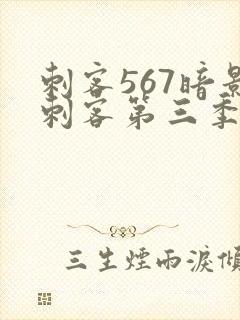 刺客567暗影
刺客第三季
三生煙雨淚傾